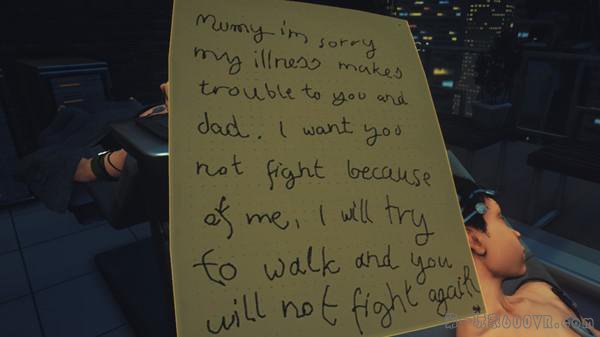 Mumy i'm sorry
my illness makes
trouble to you and
dad. I want you
not fight because
of me, I will try
to walk and you
will not fight again
600VR.com